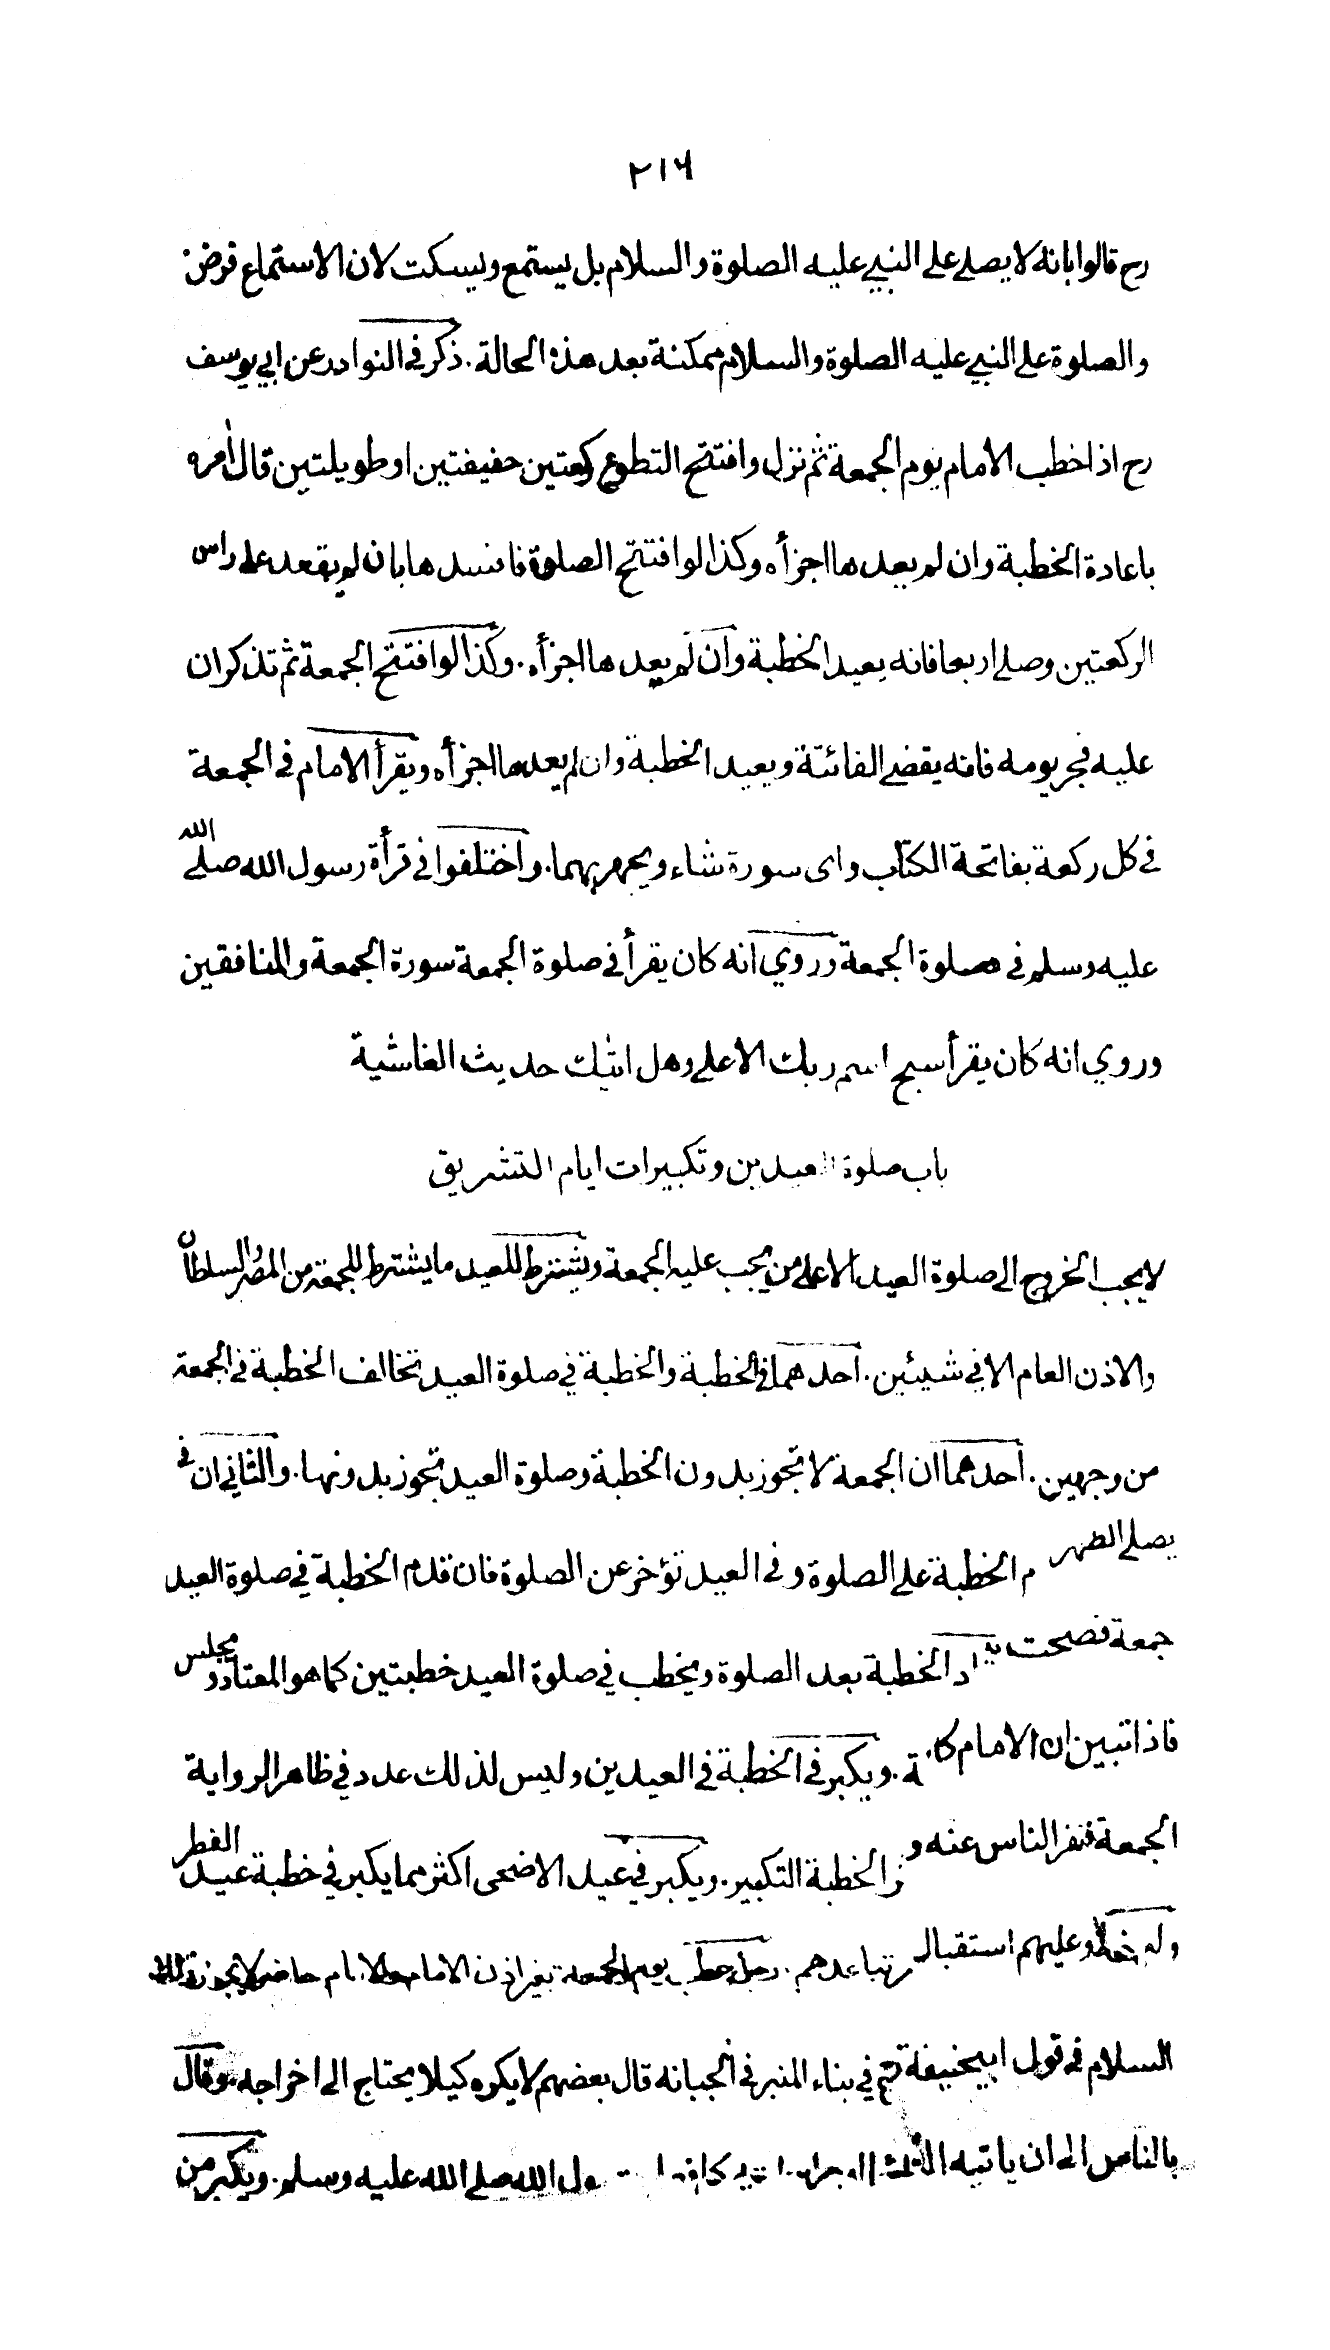 ٢١٦
رح قالوا بانه لا يصلے علی النبے عليه الصلوة والسلام بل يستمع ويسكت لان الاستماع فرض
والصلوة علی النبے عليه الصلوة والسلام ممكنة بعد هذه الحالة. ذكر فی النوادر عن ابي يوسف
رح اذا خطب الامام يوم الجمعة ثم نزل وافتتح التطوع ركعتين خفيفتين او طويلتين قال اٰمره
باعادة الخطبة وان لم يعدها اجزأه وكذا لو افتتح الصلوة فافسدها بان لم يقعد علی راس
الركعتين وصلے اربعا فانه يعيد الخطبة وان لم يعدها اجزأه. وكذا لو افتتح الجمعة ثم تذكر ان
عليه فجر يومه فانه يقضے الفائتة ويعيد الخطبة وان لم يعدها اجزأه ويقرأ الامام فی الجمعة
فی كل ركعة بفاتحة الكتاب وای سورة شاء ويجهر بهما. واختلفوا فی قرأة رسول الله صلے الله
عليه وسلم فی صلوة الجمعة وروي انه كان يقرأ فی صلوة الجمعة سورة الجمعة والمنافقين
وروي انه كان يقرأ سبح اسم ربك الاعلے وهل اتٰيك حديث الغاشية
باب صلوة العيدين وتكبيرات ايام التشريق
لا يجب الخروج الی صلوة العيد الا علی من يجب عليه الجمعة ويشترط للعيد ما يشترط للجمعة من المصر والسلطان
والاذن العام الا في شيئين. احدهما فی الخطبة والخطبة في صلوة العيد تخالف الخطبة فی الجمعة
من وجهين. احدهما ان الجمعة لا تجوز بدون الخطبة وصلوة العيد تجوز بدونها. والثاني ان فی
يصلے الظهر م الخطبة علی الصلوة وفی العيد تؤخر عن الصلوة فان قدم الخطبة فی صلوة العيد
جمعة فصحت اد الخطبة بعد الصلوة ويخطب في صلوة العيد خطبتين كما هو المعتاد و مجلس
فاذا تبين ان الامام كا ة. ويكبر فی الخطبة فی العيدين وليس لذلك عدد في ظاهر الرواية
الجمعة فنفر الناس عنه و الخطبة التكبير. ويكبر فی عيد الاضحی اكثر مما يكبر فی خطبة عيد الفطر
وعليهم استقبال تباعدهم. رجل خطب يوم الجمعة بغير اذن الامام والامام حاضر لا يجوز
السلام فی قول ابيحنيفة في بناء المنبر فی الجبانه قال بعضهم لا يكره كيلا يحتاج الی اخراجه. وقال
بالناس الی ان ياتيه ول الله صلے الله عليه وسلم. ويكبر من